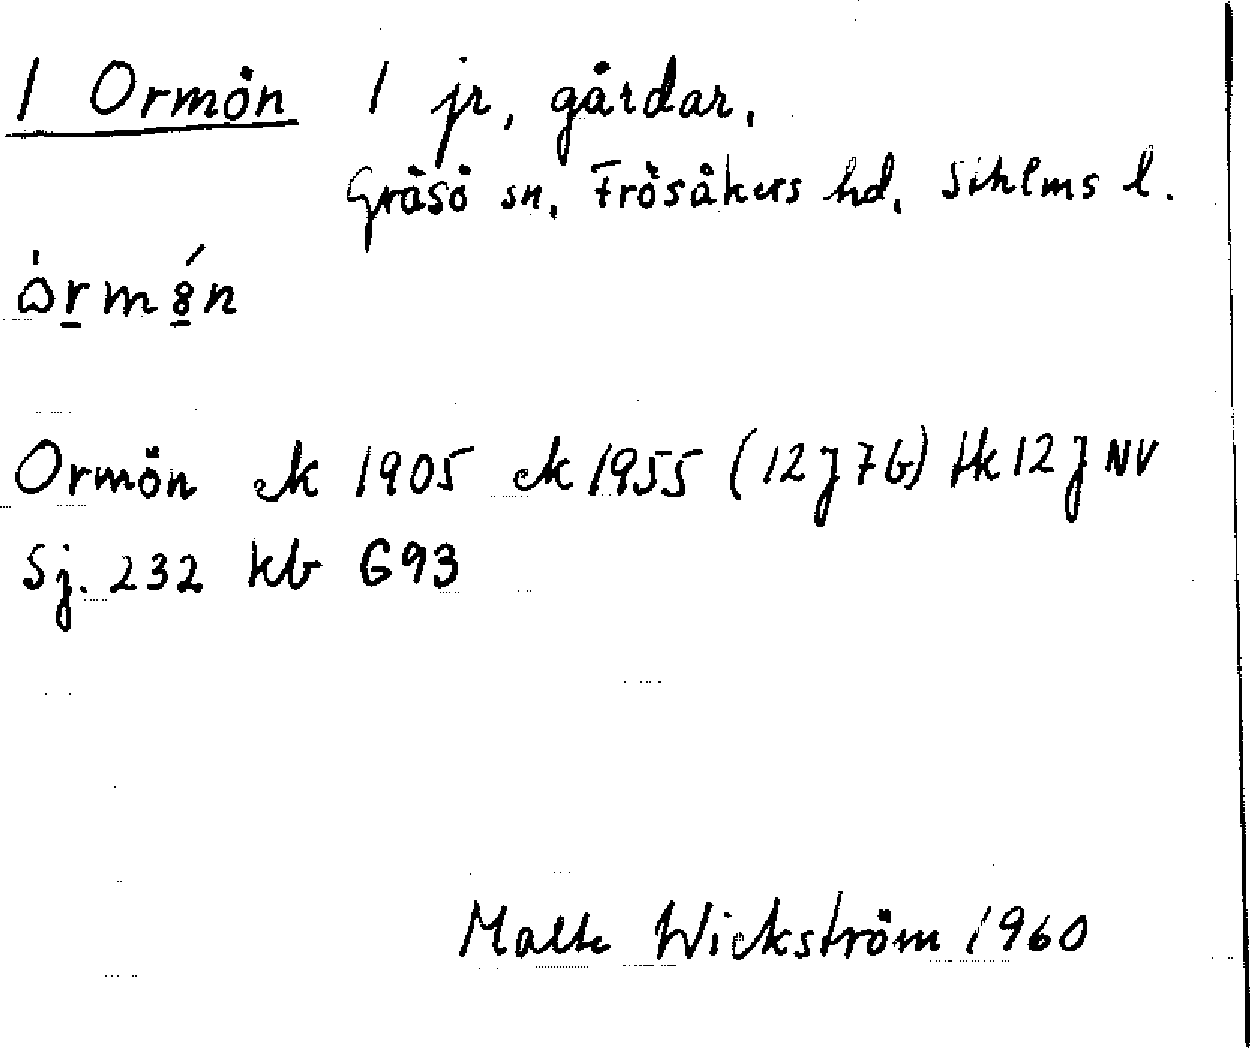 1 Ormön 1 jr, gårdar,
Gräsö sn, Frösåkers hd, Sthlms l.
Ormön ek 1905 ek 1955 (12J7b) Hk 12J NV
Sj. 232 kb G93
Malte Wickström 1960